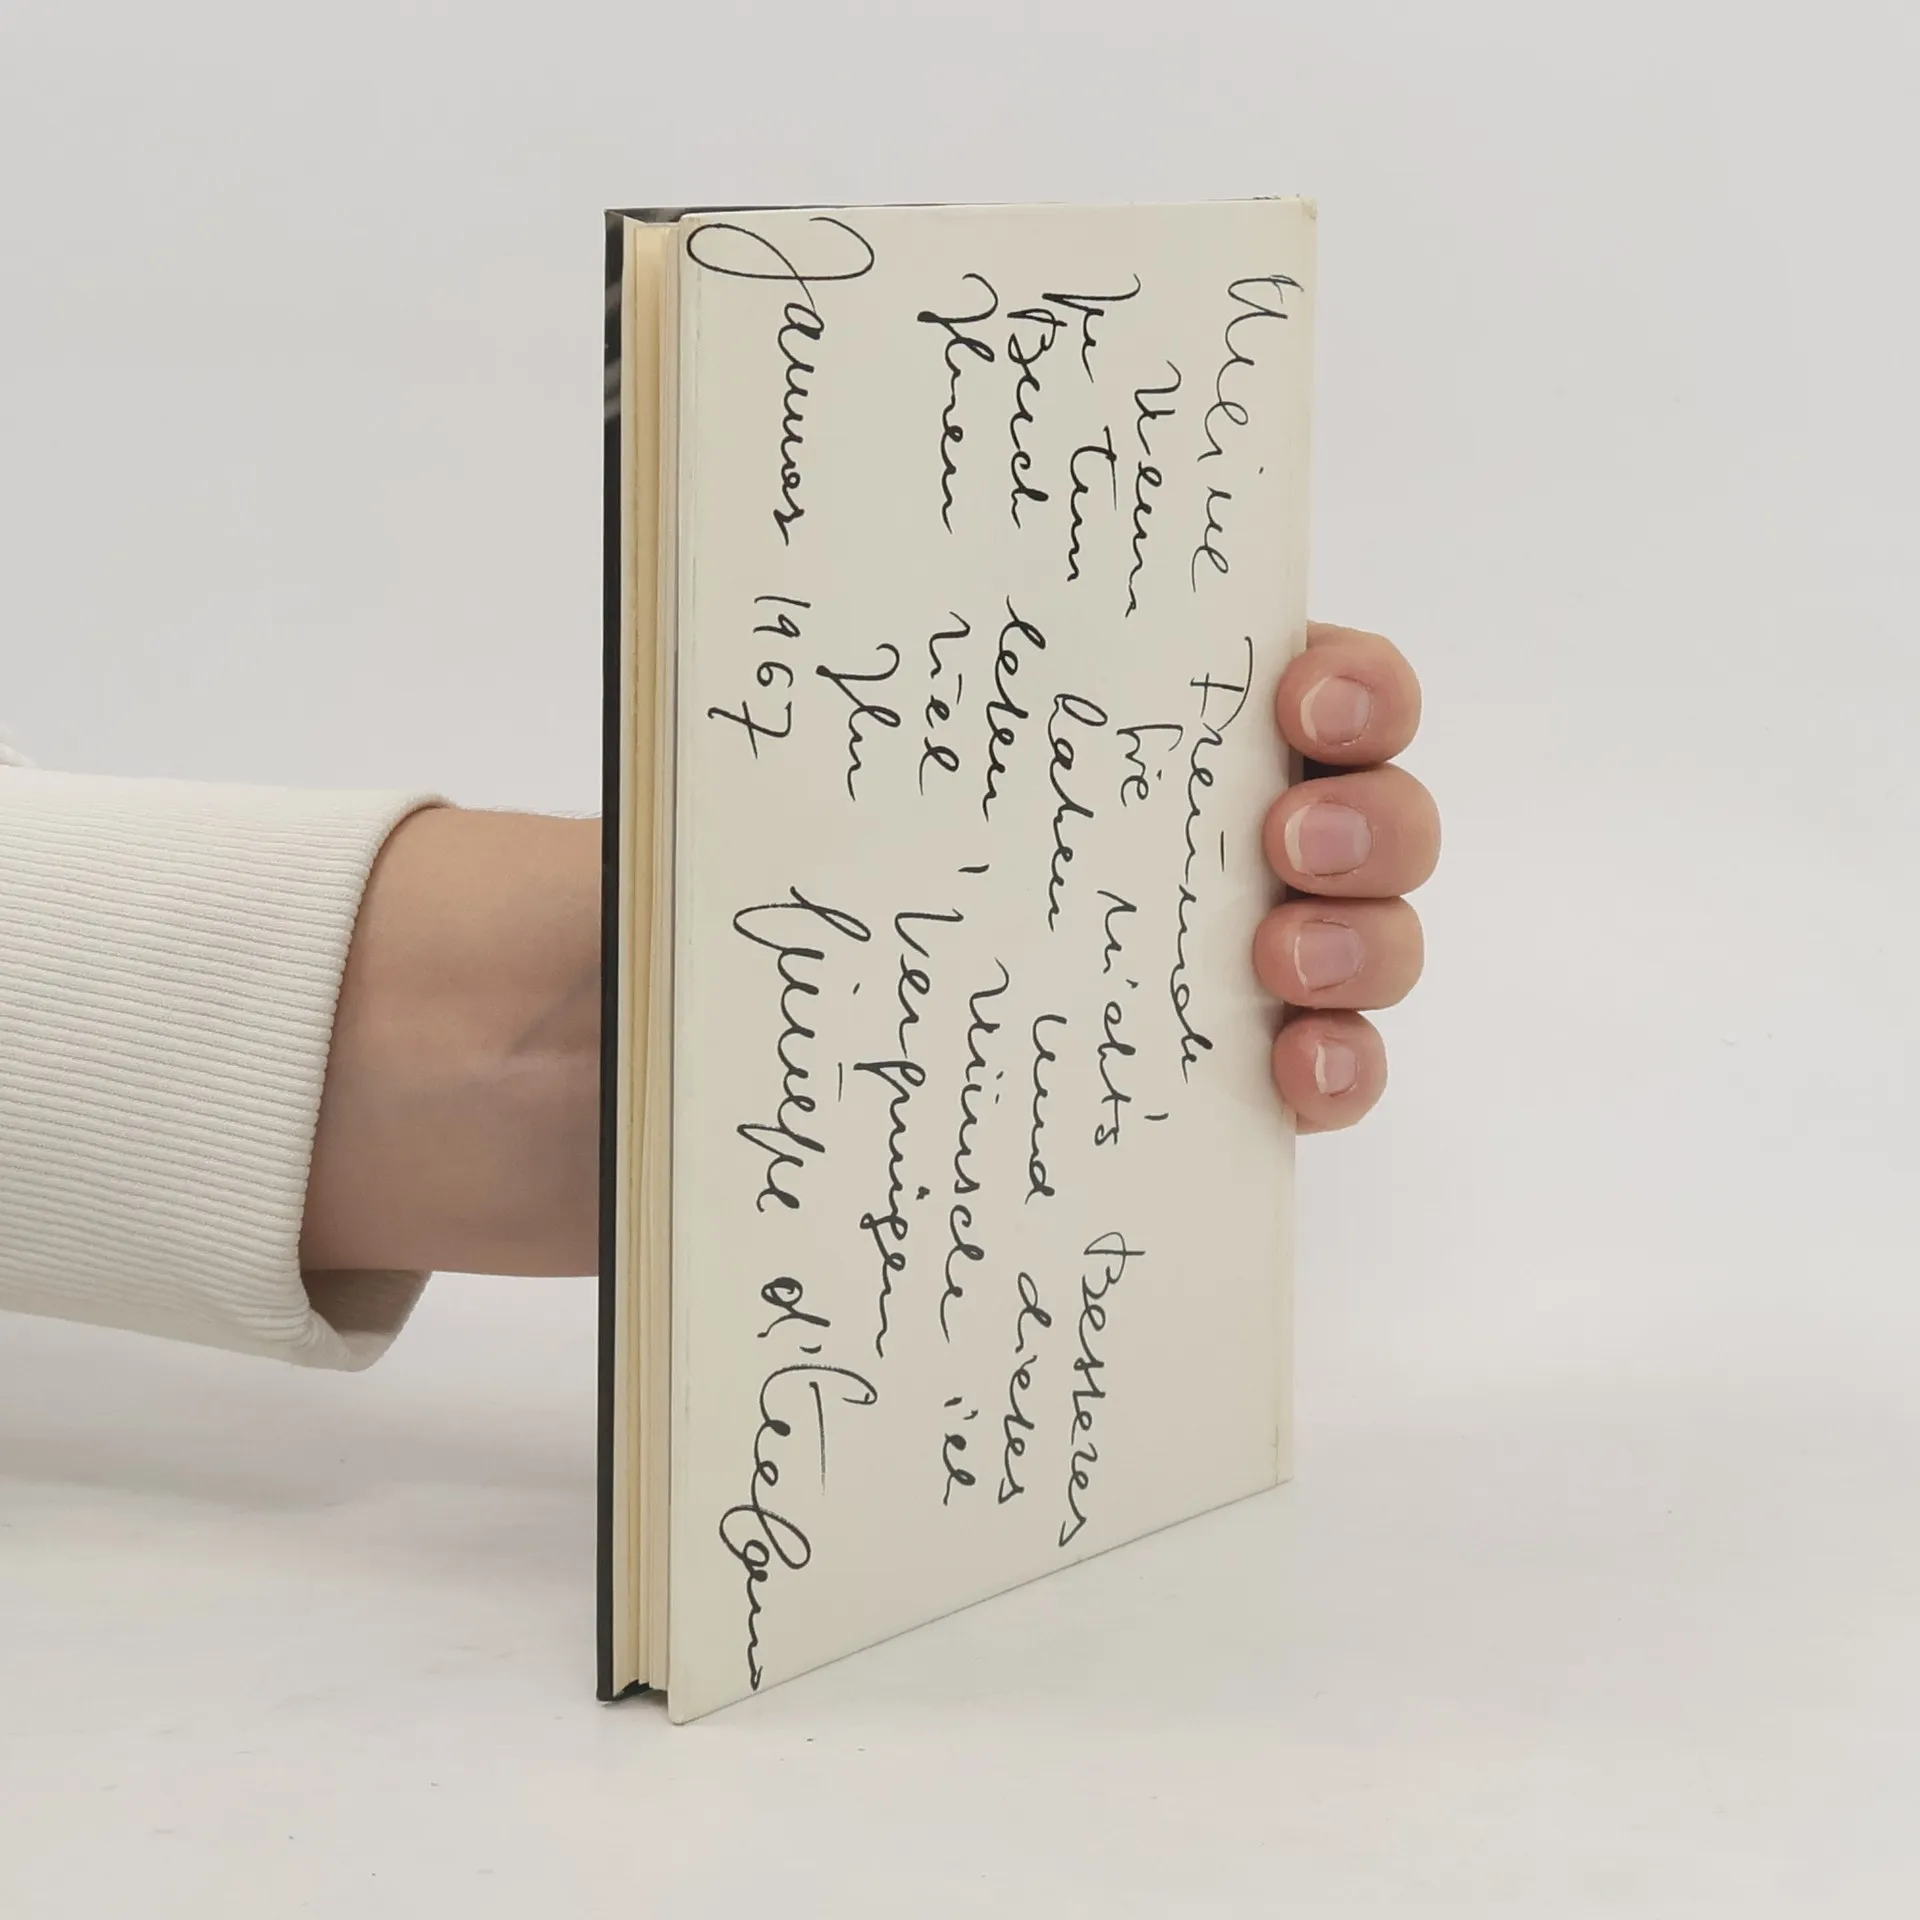 Meine Freunde
Wenn Sie nichts Besseres
zu tun haben und dieses
Buch lesen, wünsche ich
Ihnen viel Vergnügen
Ihr
Januar 1967